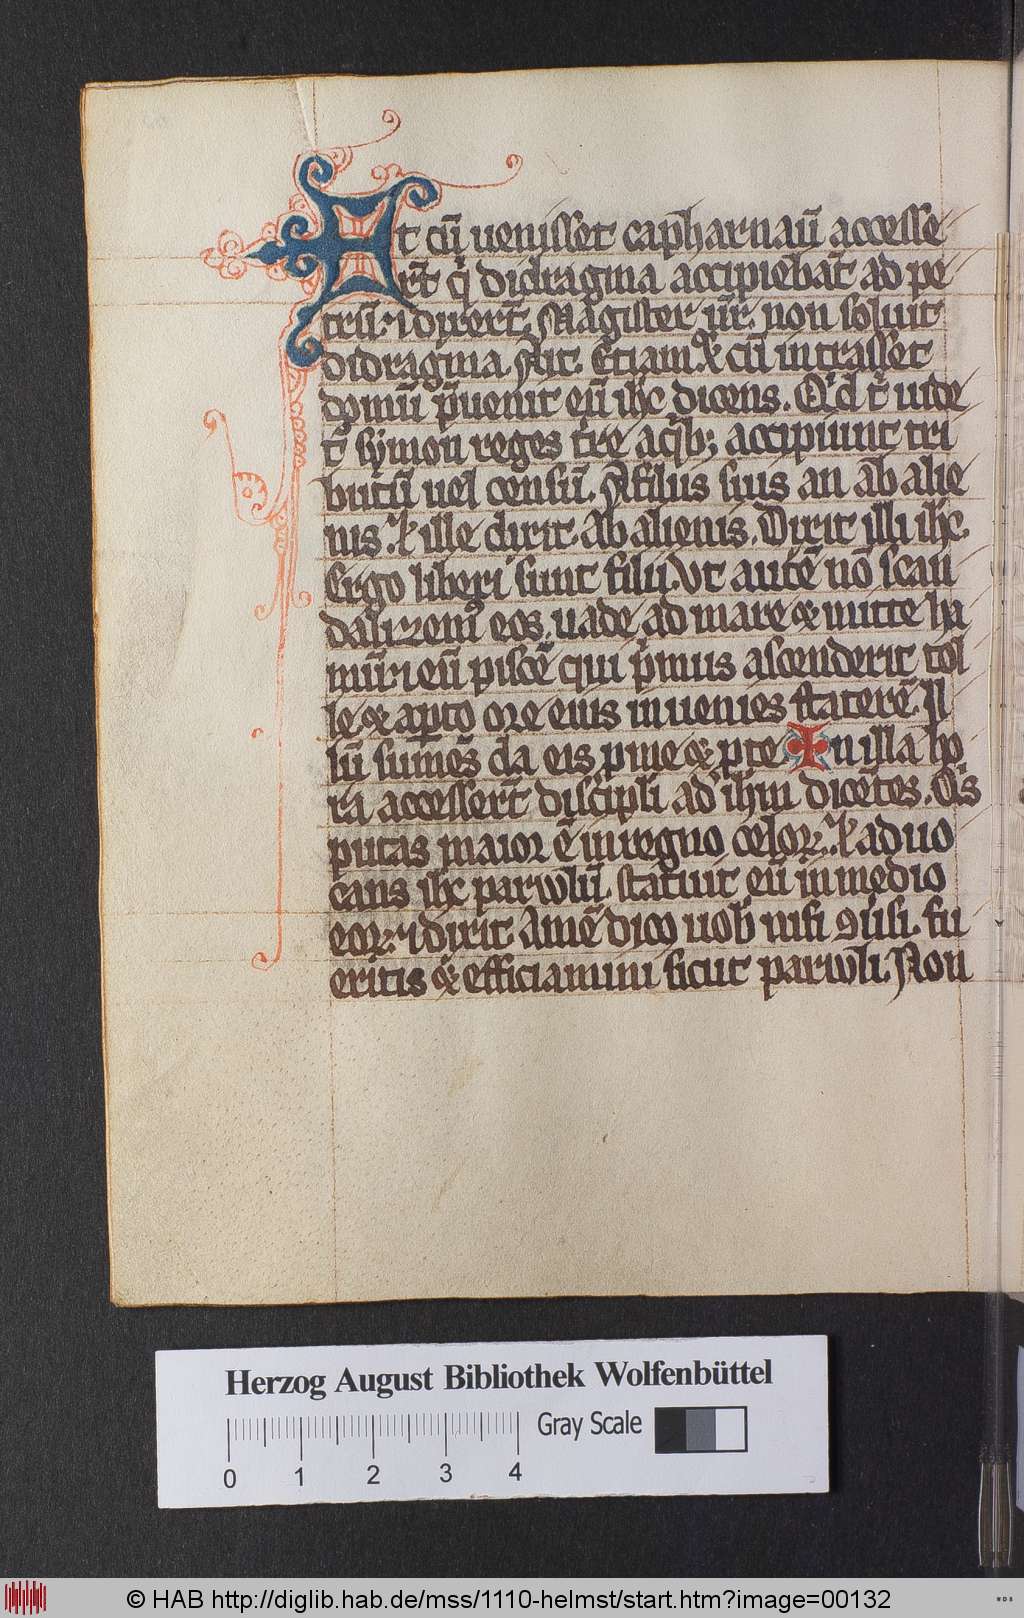 Et cū uenisset capharnaū accesse
rt̄ q̇ didragma accipiebāt ad pe
trū. ⁊ dixert̄. Magister ur̄. non soluit
didragma. Ait. Etiam. ⁊ cū intrasset
domū p̄uenit eū ihc dicens. Qͥd t̄ uide
t̄ symon reges t̄re a qͥb; accipiunt tri
butū uel censū. A filiis suis an ab alie
nis. ⁊ ille dixit. Ab alienis. Dixit illi ihc.
Ergo liberi sunt filii. Vt autē nō scan
dalizemꝰ eos. uade ad mare & mitte ha
mū. ⁊ eū piscē qui pͥmus ascenderit tol
le & aꝑto ore eius inuenies staterē. Il
lū sumēs da eis ꝑ me & ꝑ te. In illa ho
ra accessert̄ discipli ad ihm dicētes. Qͥs
putas maior ē in regno celoꝝ. ⁊ aduo
cans ihc paruulū. statuit eū in medio
eoꝝ. ⁊ dixit. Amē dico uob̄ nisi ꝯūsi. fu
eritis & efficiamini sicut paruuli. Non
Herzog August Bibliothek Wolfenbüttel
0 1 2 3 4
Gray Scale
© HAB http://diglib.hab.de/mss/1110-helmst/start.htm?image=00132